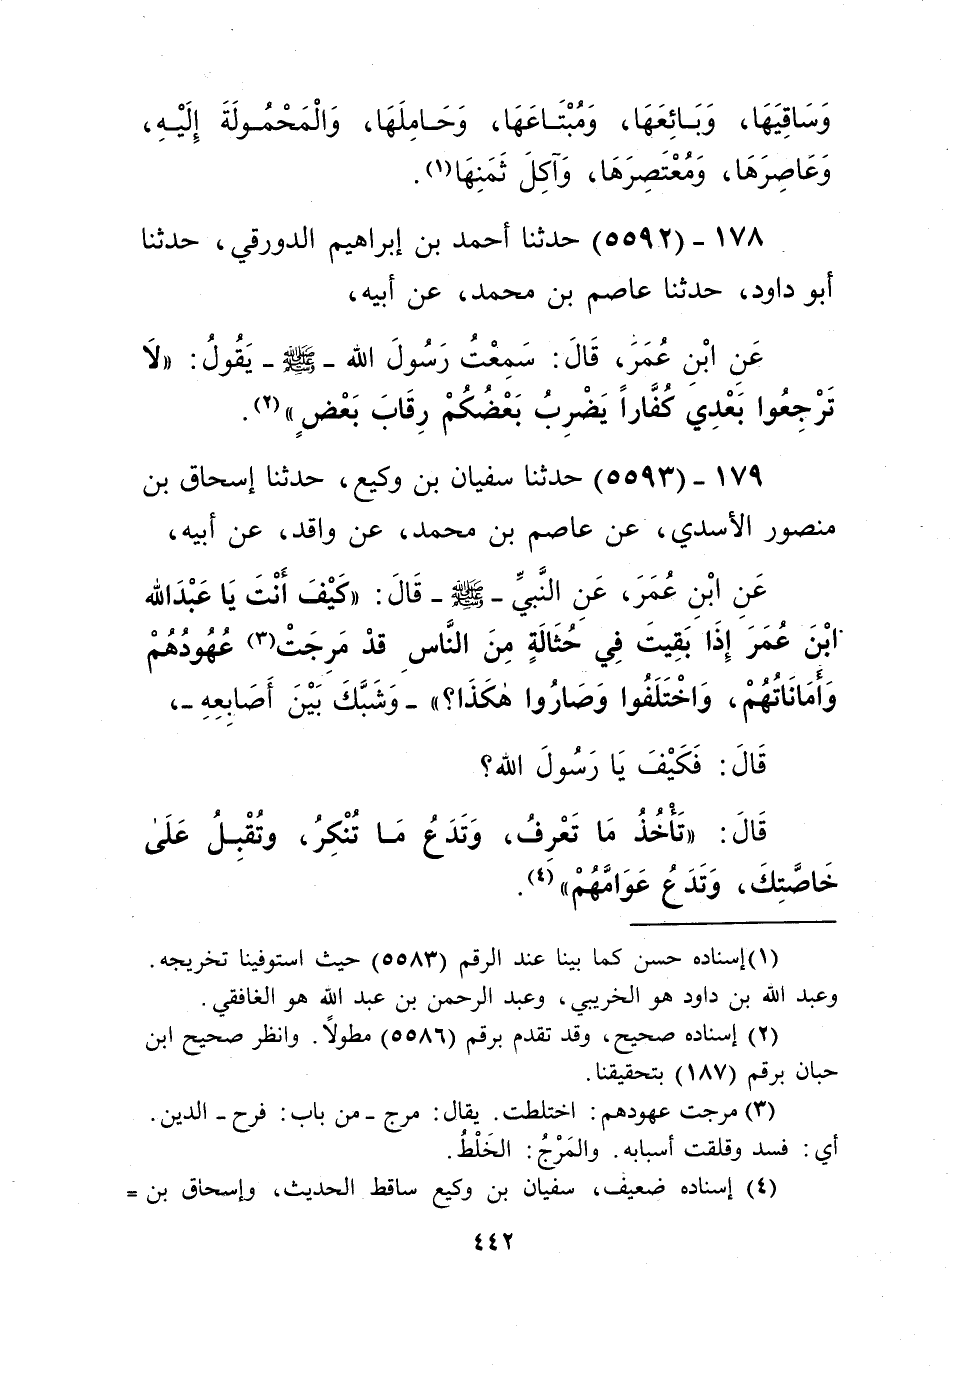 وَسَاقِيَهَا، وَبَائِعَهَا، وَمُبْتَاعَهَا، وَحَامِلَهَا، وَالْمَحْمُولَةَ إِلَيْهِ،
وَعَاصِرَهَا، وَمُعْتَصِرَهَا، وَآكِلَ ثَمَنِهَا(١).
١٧٨ - (٥٥٩٢) حدثنا أحمد بن إبراهيم الدورقي، حدثنا
أبو داود، حدثنا عاصم بن محمد، عن أبيه،
عَنِ ابْنِ عُمَرَ، قَالَ: سَمِعْتُ رَسُولَ الله - ﷺ - يَقُولُ: «لَا
تَرْجِعُوا بَعْدِي كُفَّاراً يَضْرِبُ بَعْضُكُمْ رِقَابَ بَعْضٍ»(٢).
١٧٩ - (٥٥٩٣) حدثنا سفيان بن وكيع، حدثنا إسحاق بن
منصور الأسدي، عن عاصم بن محمد، عن واقد، عن أبيه،
عَنِ ابْنِ عُمَرَ، عَنِ النَّبِيِّ - ﷺ - قَالَ: «كَيْفَ أَنْتَ يَا عَبْدَالله
ابْنَ عُمَرَ إِذَا بَقِيتَ فِي حُثَالَةٍ مِنَ النَّاسِ قدْ مَرِجَتْ(٣) عُهُودُهُمْ
وَأَمَانَاتُهُمْ، وَاخْتَلَفُوا وَصَارُوا هٰكَذَا؟» - وَشَبَّكَ بَيْنَ أَصَابِعِهِ -،
قَالَ: فَكَيْفَ يَا رَسُولَ الله؟
قَالَ: «تَأْخُذُ مَا تَعْرِفُ، وَتَدَعُ مَا تُنْكِرُ، وتُقْبِلُ عَلَىٰ
خَاصَّتِكَ، وَتَدَعُ عَوَامَّهُمْ»(٤).
(١) إسناده حسن كما بينا عند الرقم (٥٥٨٣) حيث استوفينا تخريجه.
وعبد الله بن داود هو الخريبي، وعبد الرحمن بن عبد الله هو الغافقي.
(٢) إسناده صحيح، وقد تقدم برقم (٥٥٨٦) مطولاً. وانظر صحيح ابن
حبان برقم (١٨٧) بتحقيقنا.
(٣) مرجت عهودهم: اختلطت. يقال: مرج - من باب: فرح - الدين.
أي: فسد وقلقت أسبابه. والمَرْجُ: الخَلْطُ.
(٤) إسناده ضعيف، سفيان بن وكيع ساقط الحديث، وإسحاق بن =
٤٤٢